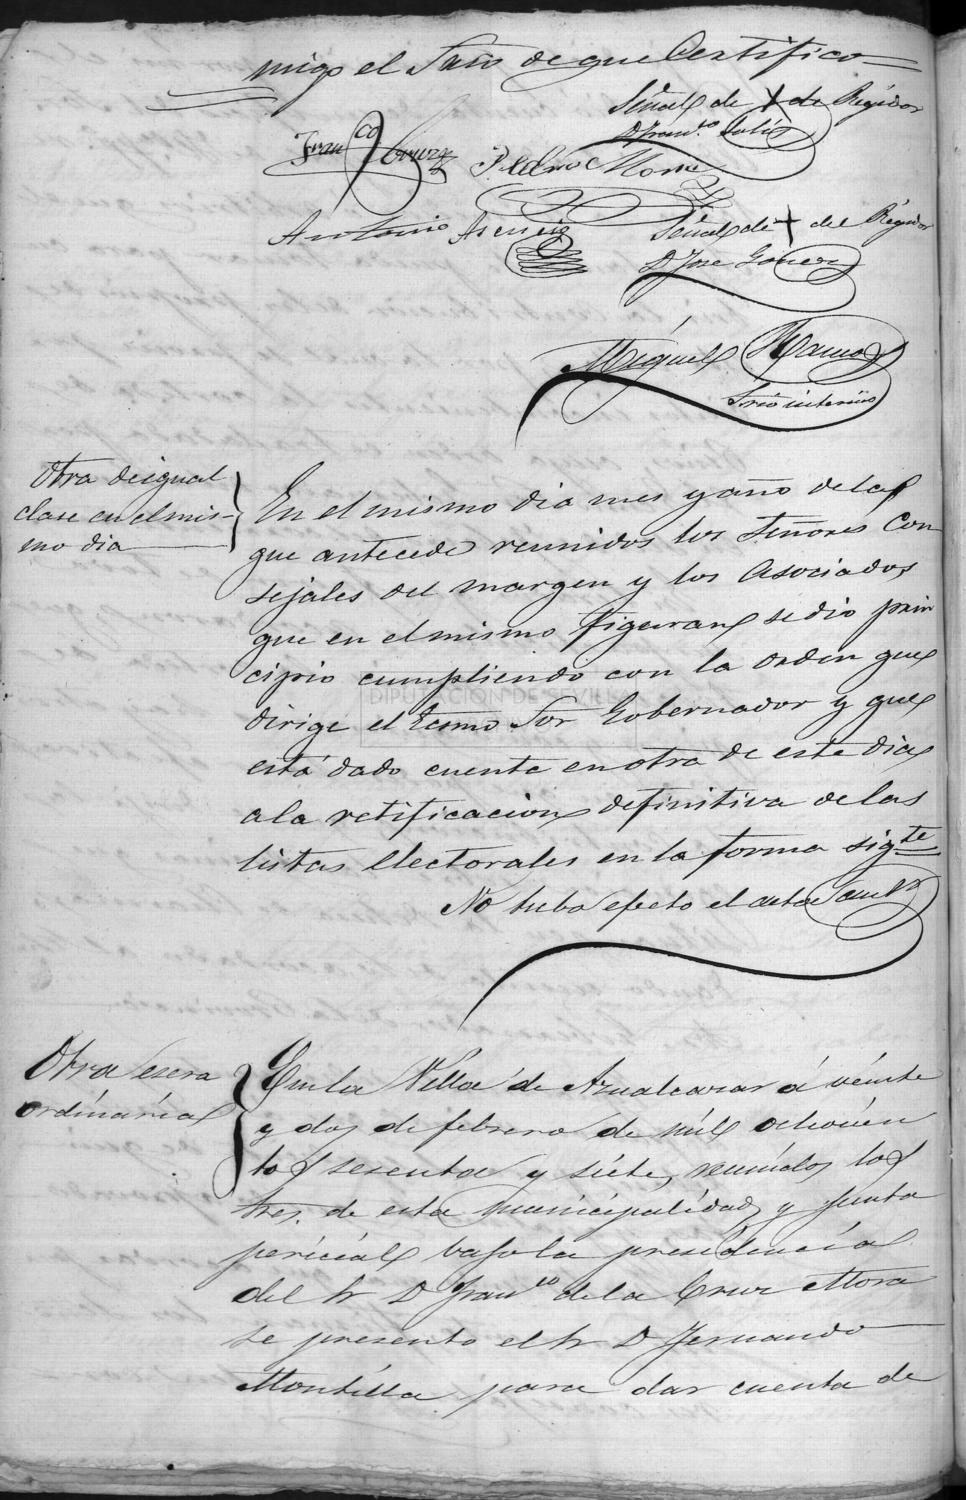 migo el Srio de que Certifico
Señal de + del Regidor
D Franco
Franco Cruz Pedro Mora
Antonio Asencio Señal de + del Regidor
D Jose Gomez
Miguel Ramos
Srio interino
Otra de igual
clase en el mis-
mo dia
En el mismo dia mes y año de la
que antecede reunidos los Señores Con
sejales del margen y los Asociados
que en el mismo figuran se dio prin
cipio cumpliendo con la orden que
DIPUTACIÓN DE SEVILLA
dirige el Ecsmo Sor Gobernador y que
está dado cuenta en otra de este dia
a la retificacion definitiva de las
listas Electorales en la forma sigte
No tubo efecto el acta
Otra
ordináría
En la Villa de Aznalcazar á veinte
y dos de febrero de míl ochocien
tos sesenta y siete, reunidos los
Sres. de esta Municipalidad y Junta
pericial bajo la presidencia
del Sr D Franco de la Cruz Mora
se presento el Sr D Fernando
Montilla para dar cuenta de